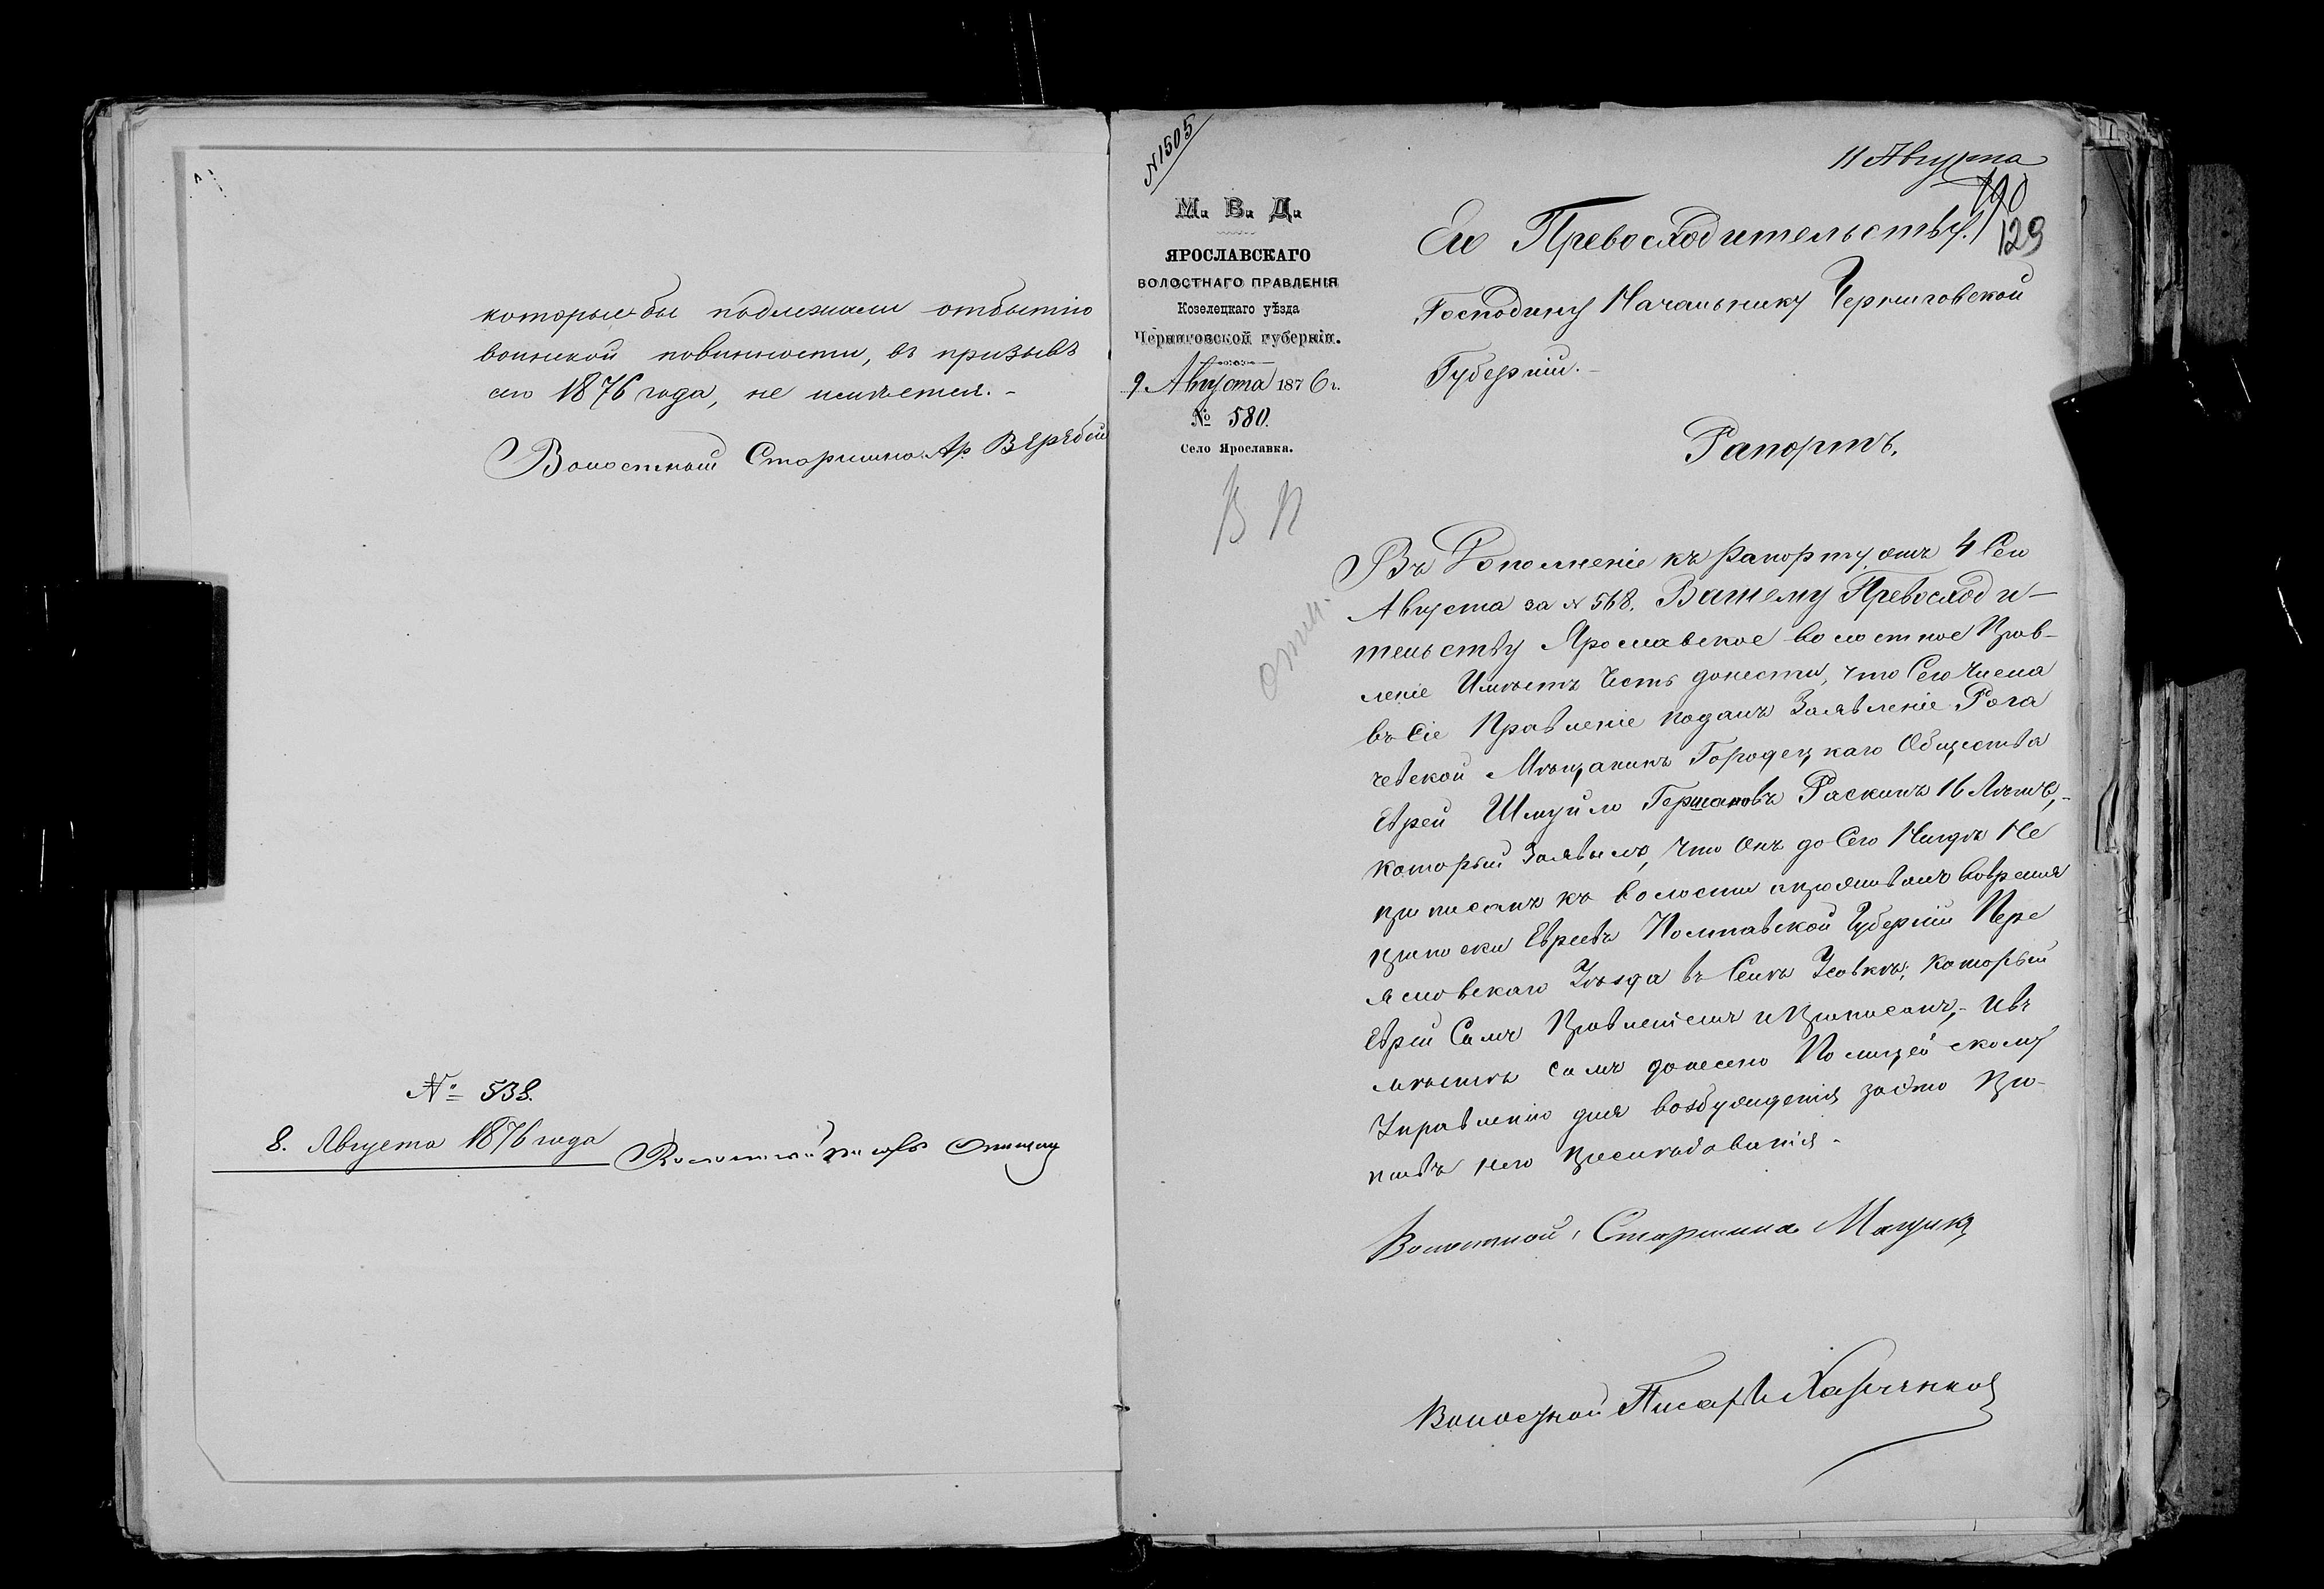 которые бы подлежали отбытію
воинской повинности, въ призывъ
сего 1876 года, не имѣется. -
Волостной Старшина Ар.
№ 538.
8. Августа 1876 года
Волостной писарь
N 1505
М. В. Д.
ЯРОСЛАВСКАГО
ВОЛОСТНАГО ПРАВЛЕНІЯ
Козелецкаго уѣзда
Черниговской губерніи.
9 Августа 1876 г.
№ 580.
Село Ярославка.
В П
11 Августа
129
Его Превосходительству.
Господину Начальнику Черниговской
Губерніи. -
Рапортъ.
Въ Дополненіе къ рапорту отъ 4 Сего
Августа за N 568. Вашему Превосходи-
тельству Ярославское волостное Прав-
леніе Имѣетъ Честь донести, что Сего Числа
въ Сіе Правленіе подалъ Заявленіе Рога
чевской Мѣщанинъ Городецкаго Общества
Еврей Шмуйло Гершановъ Раскинъ 16 Лѣтъ, -
который Заявилъ, что Онъ до Сего Нигдѣ Не
приписанъ къ волости а проживалъ вовремя
приписки Евреевъ Полтавской Губерніи Пере
яславскаго Уѣзда въ Селѣ Усовкѣ, который
Еврей Самъ и приписанъ, - Ивъ
мѣстѣ съ симъ донесено Полицейскому
Управленію для возбужденія за это про-
тивъ него преслѣдованія -
Волостной Старшина Мащика
Волостной Писарь Харченко